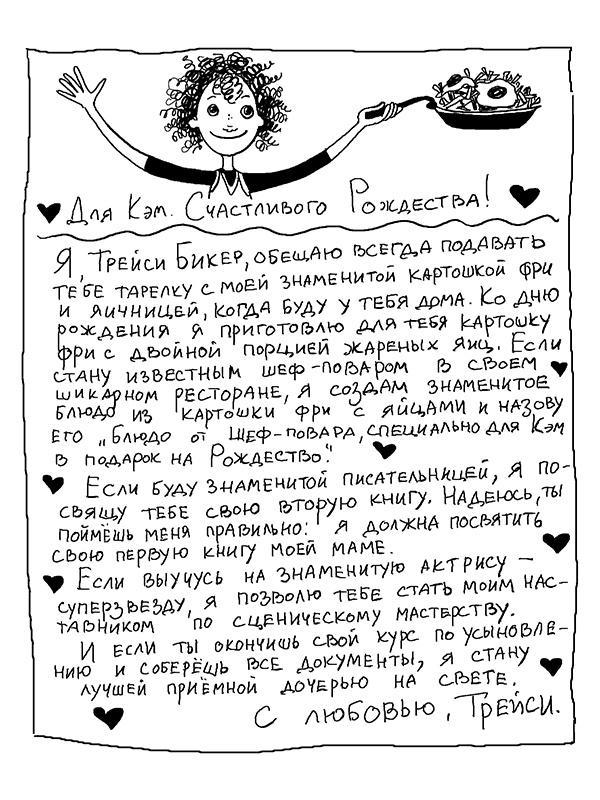 Для Кэм. Счастливого Рождества!
Я, Трейси Бикер, обещаю всегда подавать
тебе тарелку с моей знаменитой картошкой фри
и яичницей, когда буду у тебя дома. Ко дню
рождения я приготовлю для тебя картошку
фри с двойной порцией жареных яиц. Если
стану известным шеф-поваром в своём
шикарном ресторане, я создам знаменитое
блюдо из картошки фри с яйцами и назову
его „Блюдо от шеф-повара, специально для Кэм
в подарок на Рождество".
Если буду знаменитой писательницей, я по-
свящу тебе свою вторую книгу. Надеюсь, ты
поймёшь меня правильно: я должна посвятить
свою первую книгу моей маме.
Если выучусь на знаменитую актрису –
суперзвезду, я позволю тебе стать моим нас-
тавником по сценическому мастерству.
И если ты окончишь свой курс по усыновле-
нию и соберёшь все документы, я стану
лучшей приёмной дочерью на свете.
С любовью, Трейси.